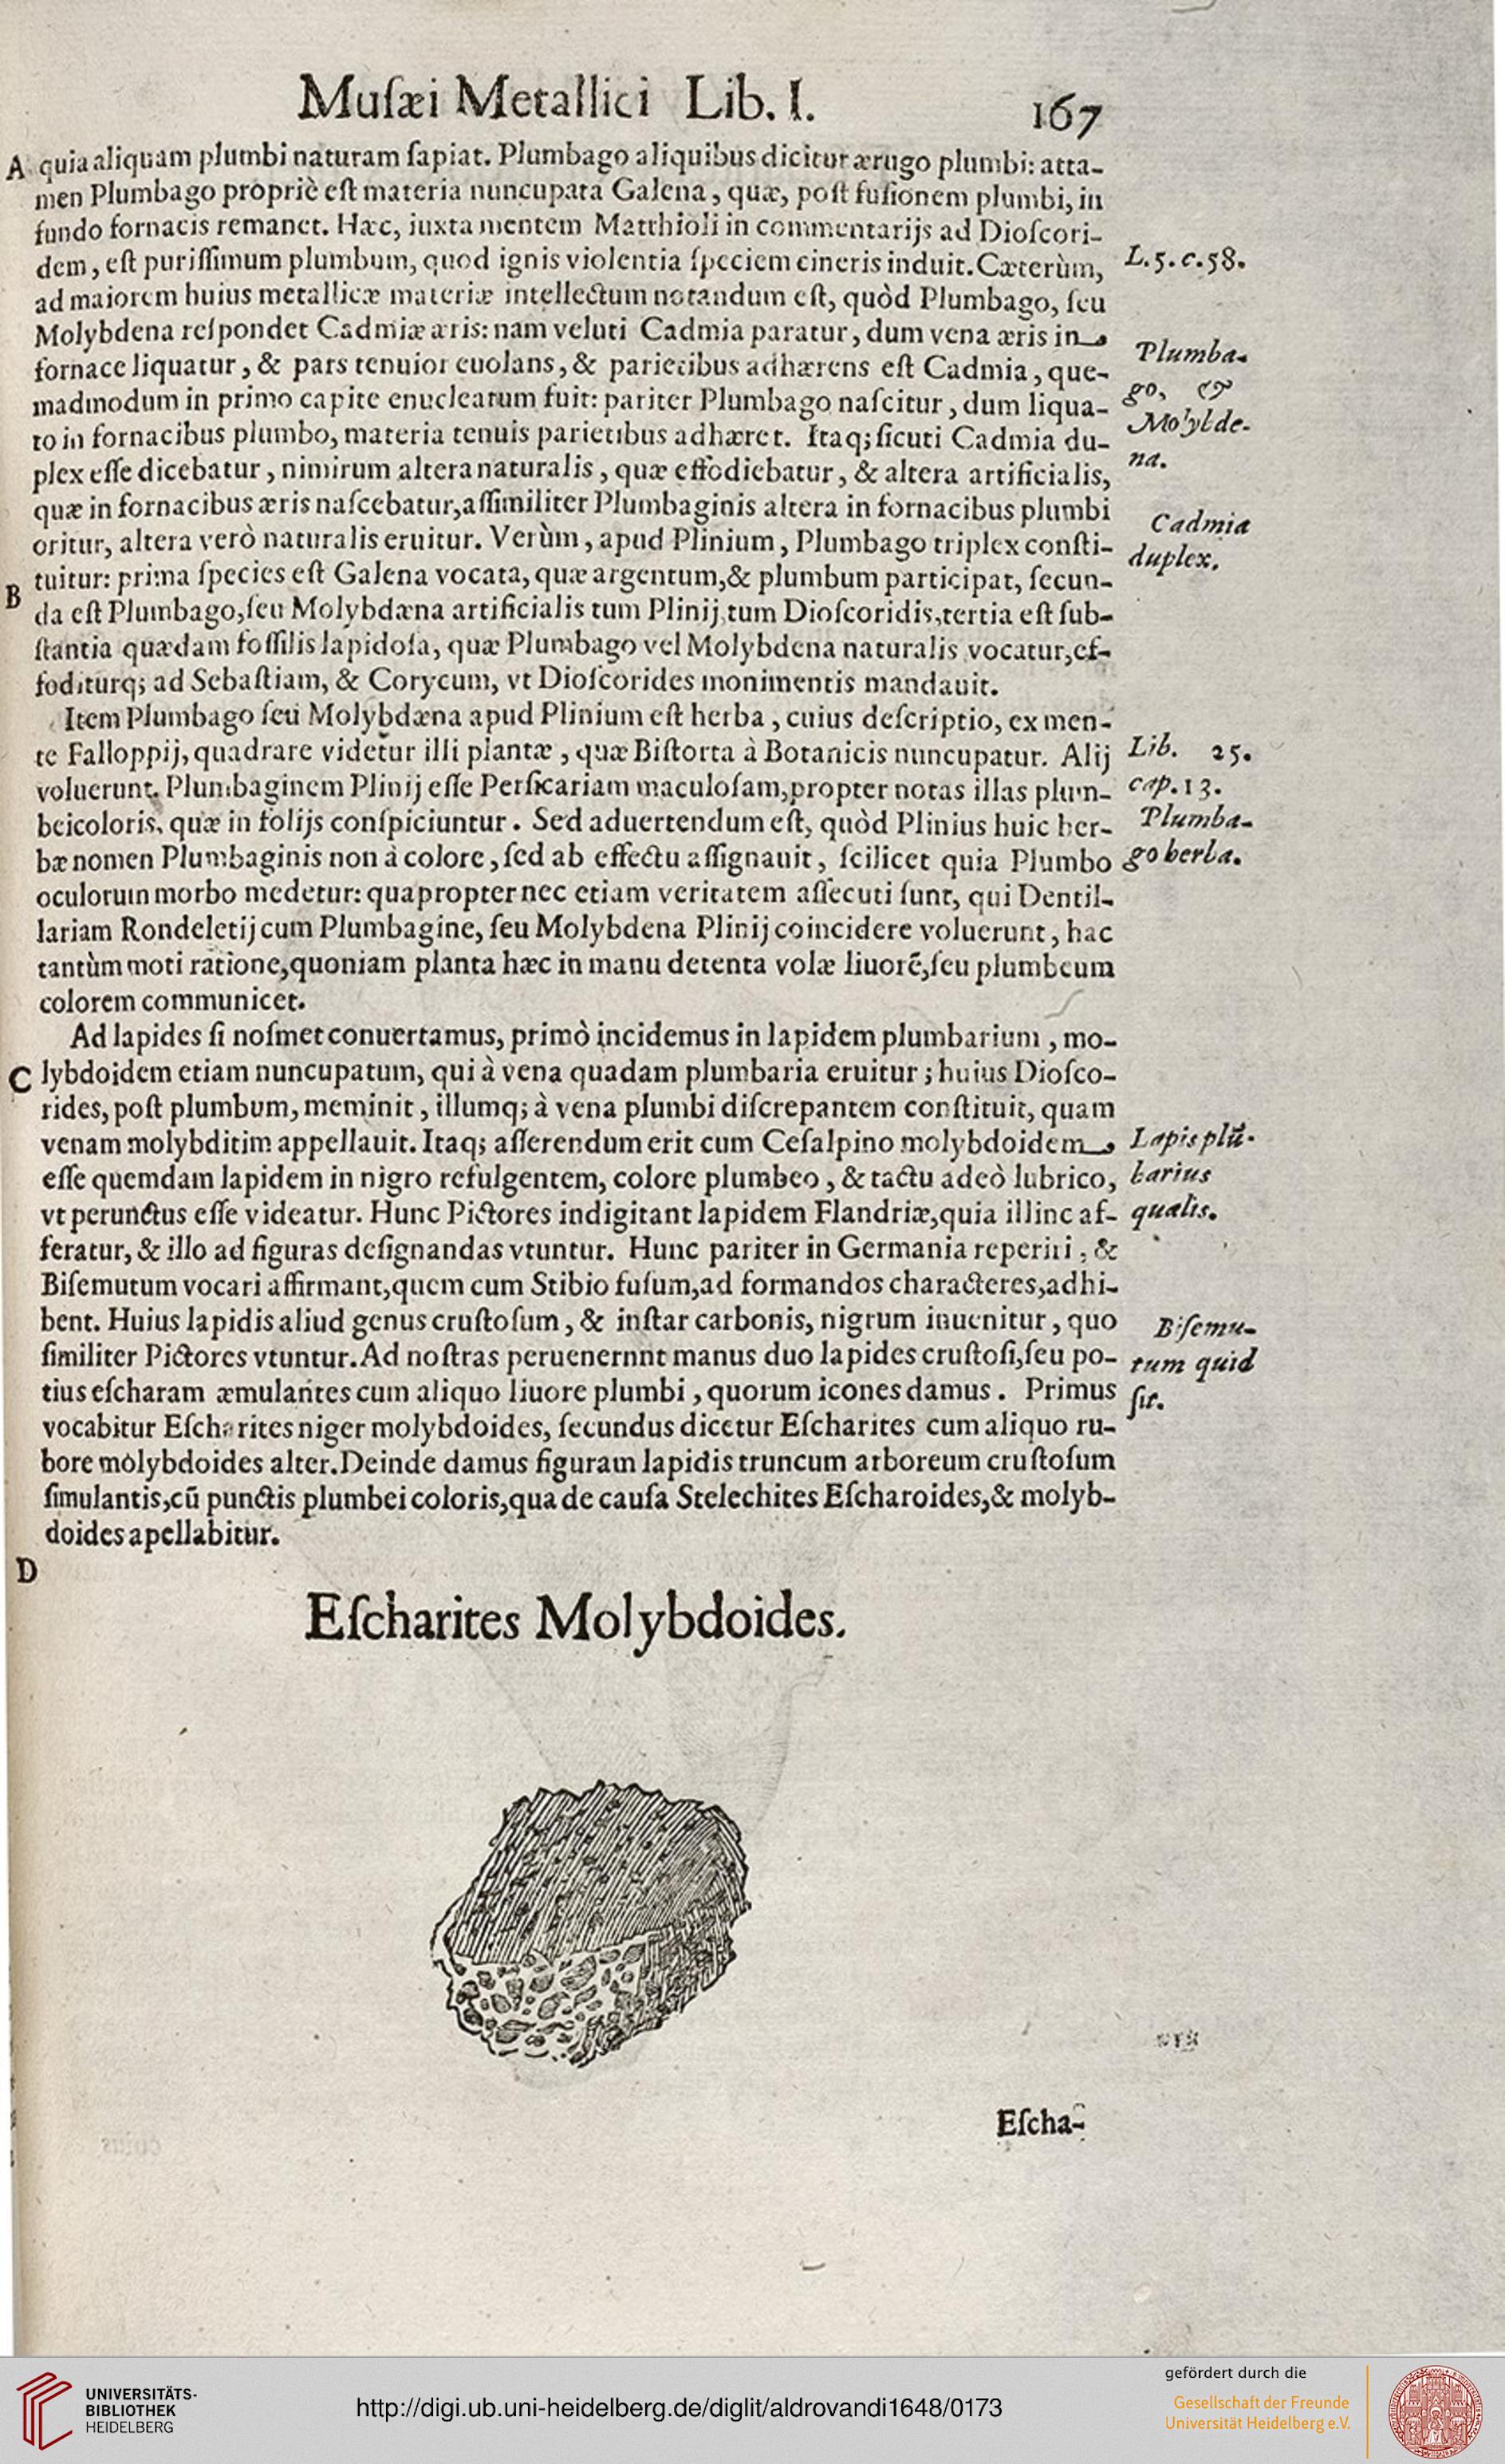 Muſæi Metallici Lib. I. 167
A quia aliquam plumbi naturam ſapiat. Plumbago aliquibus dicitur ærugo plumbi: atta-
men Plumbago propriè eſt materia nuncupata Galena, quæ, poſt fuſionem plumbi, in
fundo fornacis remanet. Hæc, iuxta mentem Matthioli in commentarijs ad Dioſcori-
dem, eſt puriſſimum plumbum, quod ignis violentia ſpeciem cineris induit. Cæterùm,
L. 5. c. 58.
ad maiorem huius metallicæ materiæ intellectum notandum eſt, quòd Plumbago, ſeu
Molybdena reſpondet Cadmiæ æris: nam veluti Cadmia paratur, dum vena æris in
fornace liquatur, & pars tenuior euolans, & parietibus adhærens eſt Cadmia, que-
madmodum in primo capite enucleatum fuit: pariter Plumbago naſcitur, dum liqua-
to in fornacibus plumbo, materia tenuis parietibus adhæret. Itaq; ſicuti Cadmia du-
Plumba-
go, &
Molybde-
na.
plex eſſe dicebatur, nimirum altera naturalis, quæ effodiebatur, & altera artificialis,
quæ in fornacibus æris naſcebatur, aſſimiliter Plumbaginis altera in fornacibus plumbi
oritur, altera verò naturalis eruitur. Verùm, apud Plinium, Plumbago triplex conſti-
Cadmia
duplex.
B tuitur: prima ſpecies eſt Galena vocata, quæ argentum, & plumbum participat, ſecun-
da eſt Plumbago, ſeu Molybdæna artificialis tum Plinij, tum Dioſcoridis, tertia eſt ſub-
ſtantia quædam foſſilis lapidoſa, quæ Plumbago vel Molybdena naturalis vocatur, ef-
foditurq; ad Sebaſtiam, & Corycum, vt Dioſcorides monimentis mandauit.
Item Plumbago ſeu Molybdæna apud Plinium eſt herba, cuius deſcriptio, ex men-
te Falloppij, quadrare videtur illi plantæ, quæ Biſtorta à Botanicis nuncupatur. Alij
voluerunt, Plumbaginem Plinij eſſe Perſicariam maculoſam, propter notas illas plum-
bei coloris, quæ in folijs conſpiciuntur. Sed aduertendum eſt, quòd Plinius huic her-
bæ nomen Plumbaginis non à colore, ſed ab effectu aſſignauit, ſcilicet quia Plumbo
Lib. 25.
cap. 13.
Plumba-
go herba.
oculorum morbo medetur: quapropter nec etiam veritatem aſſecuti ſunt, qui Dentil-
lariam Rondeletij cum Plumbagine, ſeu Molybdena Plinij coincidere voluerunt, hac
tantùm moti ratione, quoniam planta hæc in manu detenta volæ liuorē, ſeu plumbeum
colorem communicet.
Ad lapides ſi noſmet conuertamus, primò incidemus in lapidem plumbarium, mo-
C lybdoidem etiam nuncupatum, qui à vena quadam plumbaria eruitur; huius Dioſco-
rides, poſt plumbum, meminit, illumq; à vena plumbi diſcrepantem conſtituit, quam
venam molybditim appellauit. Itaq; aſſerendum erit cum Ceſalpino molybdoidem
eſſe quemdam lapidem in nigro refulgentem, colore plumbeo, & tactu adeò lubrico,
vt perunctus eſſe videatur. Hunc Pictores indigitant lapidem Flandriæ, quia illinc af-
Lapis plū-
barius
qualis.
feratur, & illo ad figuras deſignandas vtuntur. Hunc pariter in Germania reperiri, &
Biſemutum vocari affirmant, quem cum Stibio fuſum, ad formandos characteres, adhi-
bent. Huius lapidis aliud genus cruſtoſum, & inſtar carbonis, nigrum inuenitur, quo
ſimiliter Pictores vtuntur. Ad noſtras peruenernnt manus duo lapides cruſtoſi, ſeu po-
tius eſcharam æmulantes cum aliquo liuore plumbi, quorum icones damus. Primus
Biſemu-
tum quid
ſit.
vocabitur Eſcharites niger molybdoides, ſecundus dicetur Eſcharites cum aliquo ru-
bore molybdoides alter. Deinde damus figuram lapidis truncum arboreum cruſtoſum
ſimulantis, cū punctis plumbei coloris, qua de cauſa Stelechites Eſcharoides, & molyb-
doides apellabitur.
D
Eſcharites Molybdoides.
Eſcha-
UNIVERSITÄTS-
BIBLIOTHEK
HEIDELBERG
http://digi.ub.uni-heidelberg.de/diglit/aldrovandi1648/0173
gefördert durch die
Gesellschaft der Freunde
Universität Heidelberg e.V.